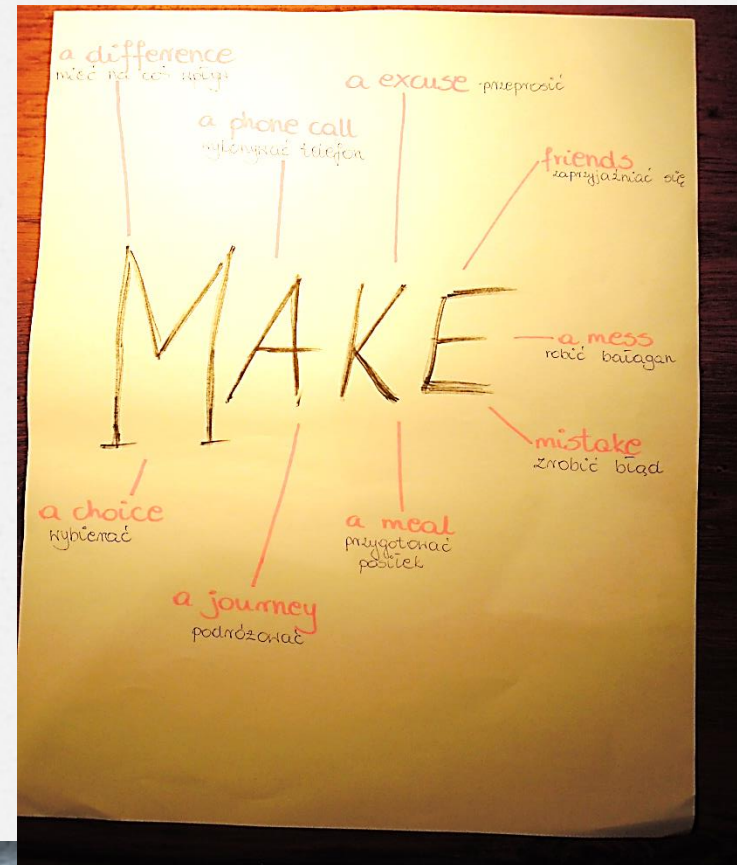 a difference
mieć na coś wpływ
a excuse - przeprosić
a phone call
wykonywać telefon
friends
zaprzyjaźniać się
MAKE
a mess
robić bałagan
mistake
zrobić błąd
a choice
wybierać
a meal
przygotować
posiłek
a journey
podróżować